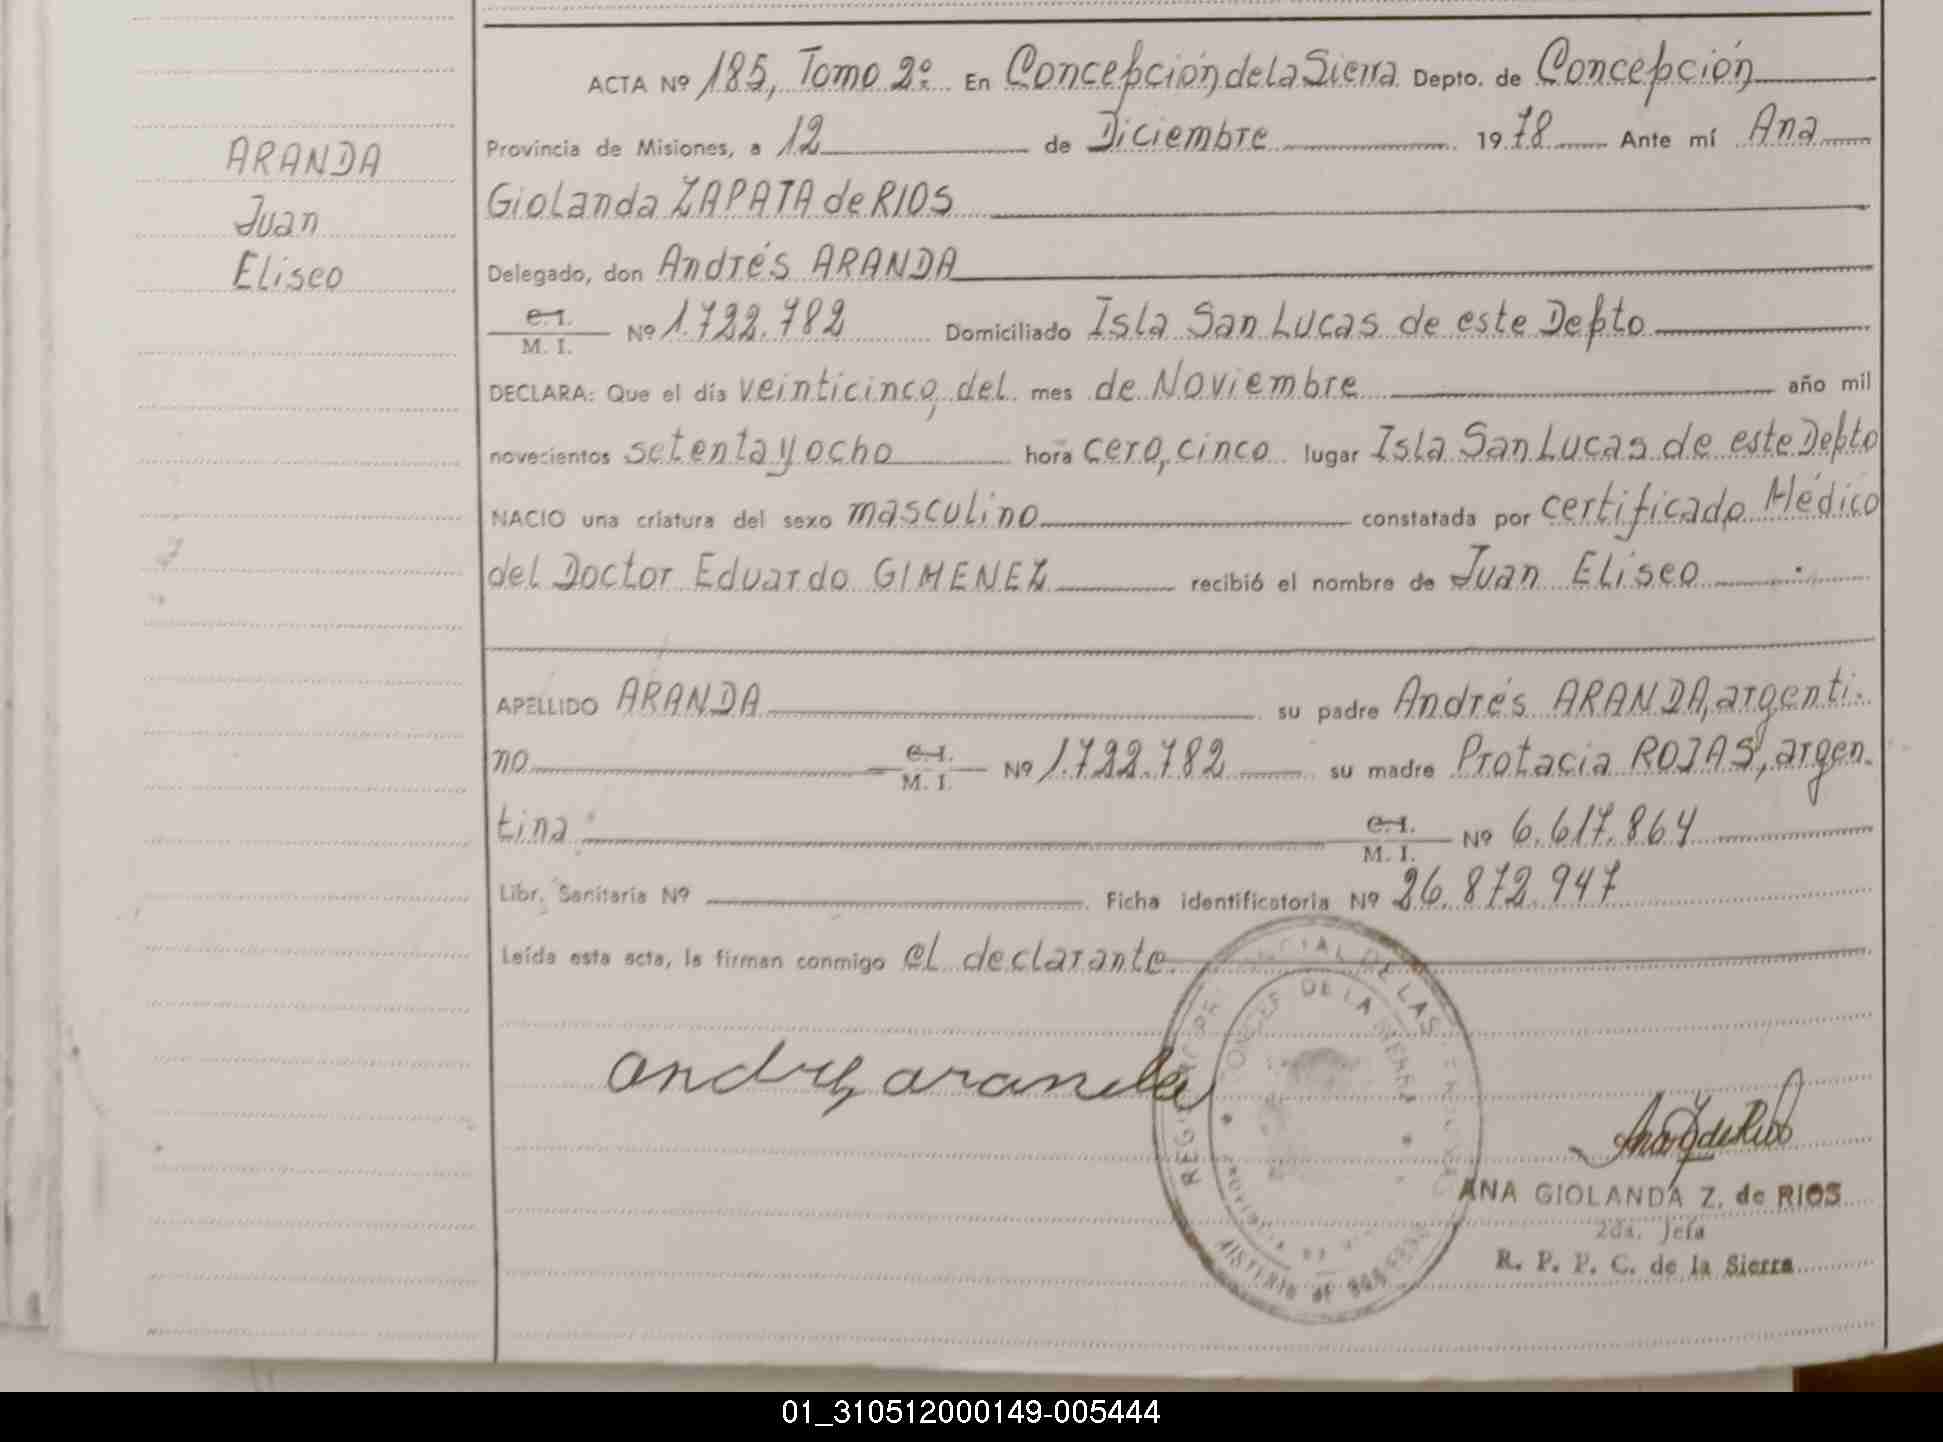 ACTA Nº 185, Tomo 2º En Concepción de la Sierra Depto. de Concepción
Provincia de Misiones, a 12 de Diciembre 1978 Ante mí Ana
Giolanda ZAPATA de RIOS
Delegado, don Andrés ARANDA
C. I.
M. I. Nº 1.722.782 Domiciliado Isla San Lucas de este Depto
DECLARA: Que el día veinticinco, del mes de Noviembre año mil
novecientos setenta y ocho hora cero, cinco lugar Isla San Lucas de este Depto
NACIO una criatura del sexo masculino constatada por certificado Médico
del Doctor Eduardo GIMENEZ recibió el nombre de Juan Eliseo
APELLIDO ARANDA su padre Andrés ARANDA, argenti-
no C. I.
M. I. Nº 1.722.782 su madre Protacia ROJAS, argen-
tina C. I.
M. I. Nº 6.617.864
Libr. Sanitaria Nº Ficha identificatoria Nº 26.872.947
Leída esta acta, la firman conmigo el declarante
ARANDA
Juan
Eliseo
andres aranda
DE LAS
DE LA SIERRA
Ana Z de Rios
ANA GIOLANDA Z. de RIOS
2da. Jefa
R. P. P. C. de la Sierra
01_310512000149-005444